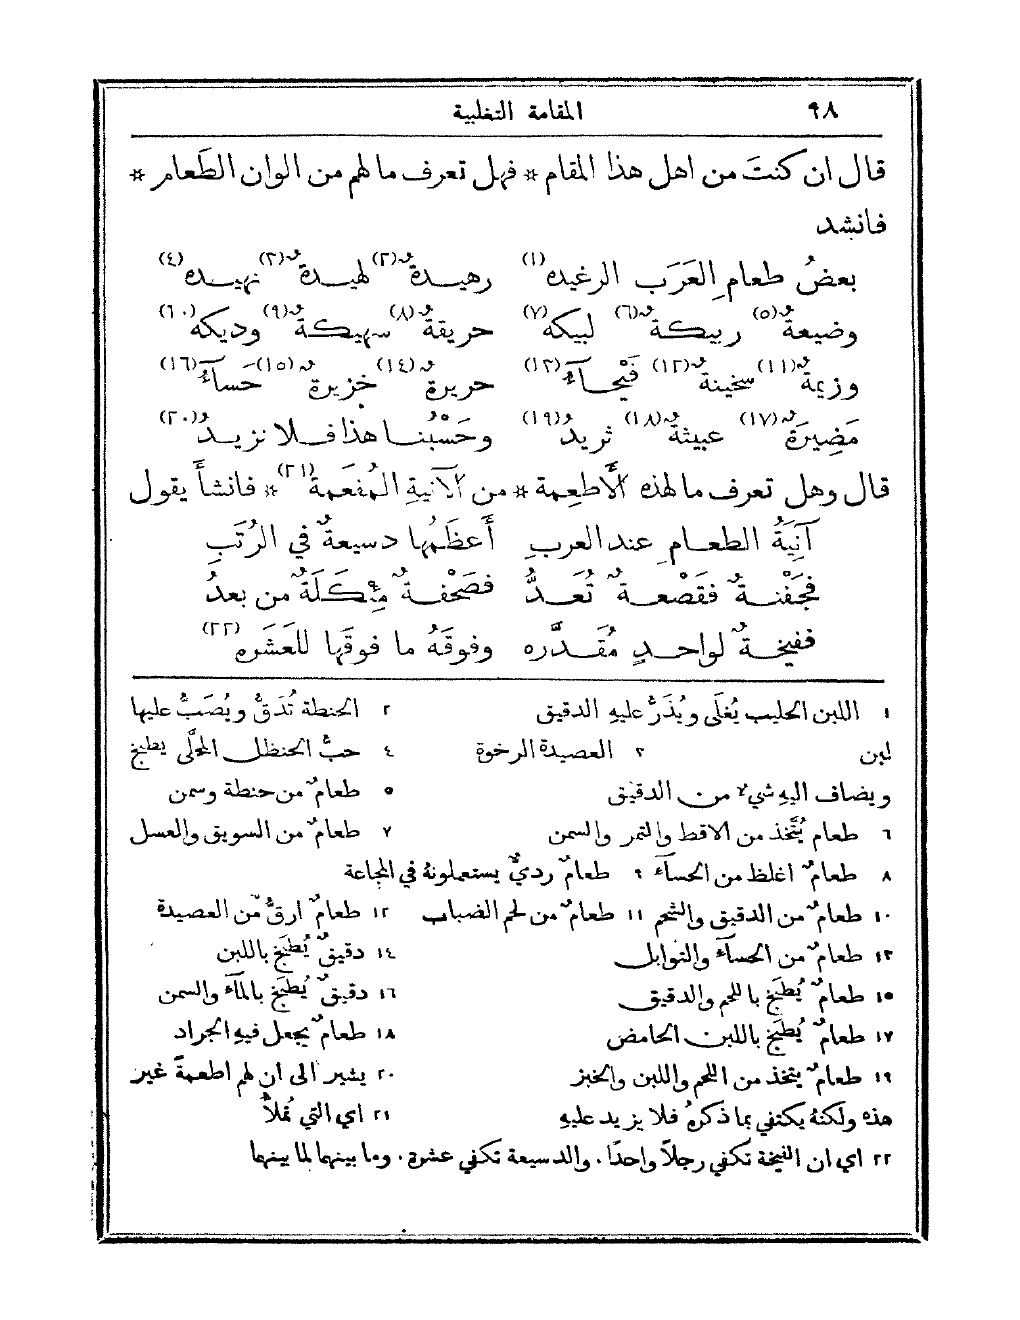 ٩٨ المقامة التغلبية
قال ان كنتَ من اهل هذا المقام * فهل تعرف ما لهم من الوان الطَعام *
فانشد
بعضُ طعامِ العَرَب الرغيده(١) رهيدةٌ(٢) لهيدةٌ(٣) نهيده(٤)
وضيعةٌ(٥) ربيكةٌ(٦) لبيكه(٧) حريقةٌ(٨) سهيكةٌ(٩) وديكه(١٠)
وزيمةٌ(١١) سخينةٌ(١٢) فَيْحآءُ(١٣) حريرةٌ(١٤) خزيرةٌ(١٥) حَسآءُ(١٦)
مَضِيرَةٌ(١٧) عبيثةٌ(١٨) ثريدُ(١٩) وحَسْبُنا هذا فلا نزيدُ(٢٠)
قال وهل تعرف ما لهذه الأَطعِمة * من الآنيةِ المُفعَمة(٢١) * فانشأَ يقول
آنِيَةُ الطعامِ عند العربِ أَعظَمُها دسيعةٌ في الرُتَبِ
فجَفْنةٌ فقَصْعةٌ تُعَدُّ فصَحْفةٌ مِئكَلَةٌ من بعدُ
ففيخةٌ لواحدٍ مُقدَّره وفوقَهُ ما فوقَها للعَشَره(٢٢)
١ اللبن الحليب يُغلَى ويُذَرُّ عليهِ الدقيق ٢ الحنطة تُدَقُّ ويُصَبُّ عليها
لبن ٣ العصيدة الرخوة ٤ حبُّ الحنظل المحلَّى يطبخ
ويضاف اليهِ شيءٌ من الدقيق ٥ طعامٌ من حنطة وسمن
٦ طعام يُتَّخذ من الاقط والتمر والسمن ٧ طعامٌ من السويق والعسل
٨ طعامٌ اغلظ من الحسآءَ ٩ طعامٌ رديٌّ يستعملونهُ في المجاعة
١٠ طعامٌ من الدقيق والشحم ١١ طعامٌ من لحم الضباب ١٢ طعامٌ ارقُّ من العصيدة
١٣ طعامٌ من الحسآءَ والتوابل ١٤ دقيقٌ يُطبَخ باللبن
١٥ طعامٌ يُطبَخ باللحم والدقيق ١٦ دقيقٌ يُطبَخ بالمآءَ والسمن
١٧ طعامٌ يُطبَخ باللبن الحامض ١٨ طعامٌ يجعل فيهِ الجراد
١٩ طعامٌ يتخذ من اللحم واللبن والخبز ٢٠ يشير الى ان لهم اطعمةً غير
هذه ولكنهُ يكتفي بما ذكرهُ فلا يزيد عليهِ ٢١ اي التي تُملأُ
٢٢ اي ان الفيخة تكفي رجلاً واحدًا. والدسيعة تكفي عشرة. وما بينهما لما بينهما